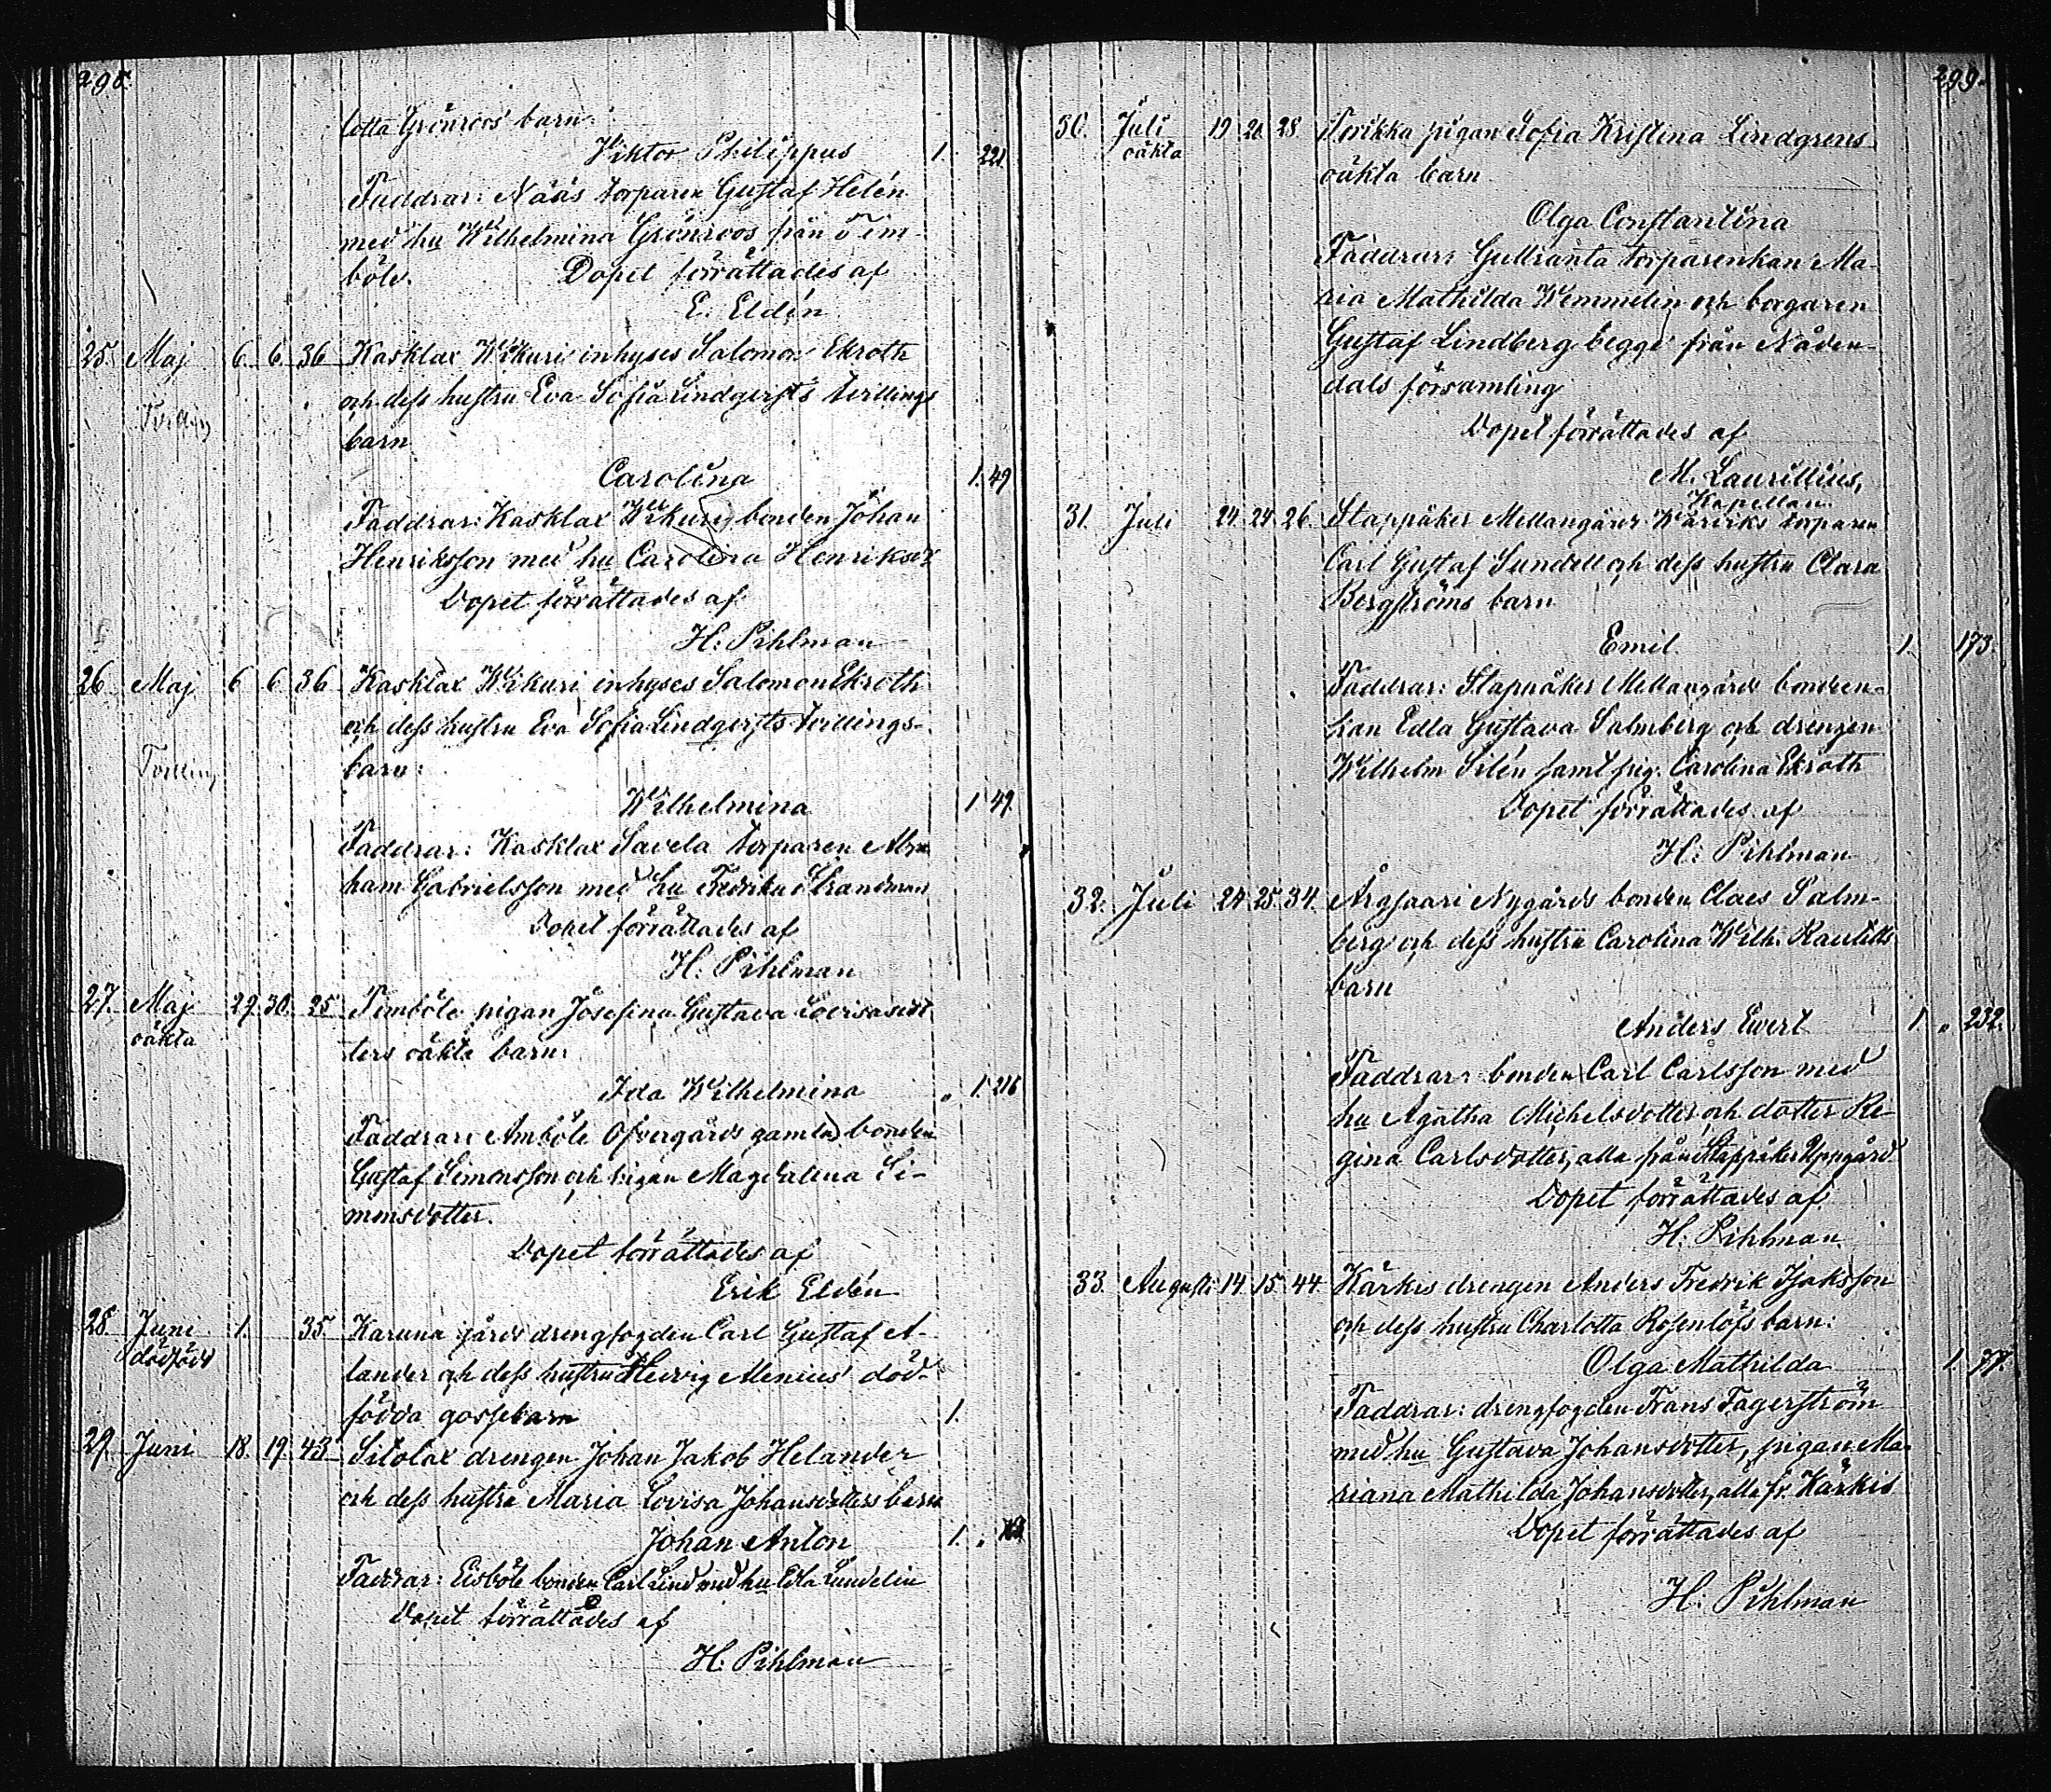 298.
lotta Grönroos' barn:
Viktor Philippus 1. 221
Faddrar: Nääs torparen Gustaf Helén
med hu Wilhelmina Grönroos från Tim-
böle. Dopet förrättades af
E. Eldén
25. Maj 6. 6. 36 Kasklax Wikuri inhyses Salomon Ekroth
och dess hustru Eva Sofia Lindqvists tvillings
Tvilling
barn
Carolina 1. 49
Faddrar: Kasklax Wikuri bonden Johan
Henriksson med hu Carolina Henriksdr
Dopet förrättades af
H. Pihlman
26 Maj 6 6 36 Kasklax Wikuri inhyses Salomon Ekroth
och dess hustru Eva Sofia Lindqvists tvillings-
Tvilling barn:
Wilhelmina 1 49.
Faddrar: Kasklax Savela torparen Abra
ham Gabrielsson med hu Fredrika Strandman
Dopet förrättades af
H. Pihlman
27. Maj 29. 30. 25 Timböle pigan Josefina Gustava Lovisadot
oäkta ters oäkta barn:
Ida Wilhelmina „ 1. 216
Faddrar: Amböle Öfvergårds gamla bonden
Gustaf Simonsson och pigan Magdalena Si-
monsdotter.
Dopet förrättades af
Erik Eldén
28. Juni 1. 35 Karuna gårds drengfogden Carl Gustaf A-
dödfödd lander och dess hustru Hedvig Menius' död-
födda gossebarn 1.
29. Juni 18. 19. 43 Sitolax drengen Johan Jakob Helander
och dess hustru Maria Lovisa Johansdotters barn
Johan Anton 1. „
Faddrar: Eidböle bonden Carl Lind med hu Edla Lundelin
Dopet förrättades af
H. Pihlman
299.
30. Juli 19 20 28 pigan Sofia Kristina Lindgrens
oäkta oäkta barn
Olga Constantina
Faddrar: Gullranta torparenkan Ma-
ria Mathilda Wemmelin och borgaren
Gustaf Lindberg begge från Nåden-
dals församling
Dopet förrättades af
M. Laurellius,
Kapellan.
31. Juli 24. 24 26. Stappåker Mellangårds torparen
Carl Gustaf Sundell och dess hustru Clara
Bergströms barn
Emil 1. 173.
Faddrar: Stappåker Mellangårds bonden-
kan Edla Gustava Salmberg och drengen
Wilhelm Silén samt pig. Carolina Ekroth
Dopet förrättades af
H. Pihlman
32. Juli 24 25 34. Argsaari Nygårds bonden Claes Salm-
berg och dess hustru Carolina Wilh.
barn
Anders Evert 1 „ 232.
Faddrar: bonden Carl Carlsson med
hu Agatha Michelsdotter och dotter Re-
gina Carlsdotter, alla från Stappåker Uppgård
Dopet förrättades af
H. Pihlman
33. Augusti 14 15 44. Kärkis drengen Anders Fredrik Isaksson
och dess hustru Charlotta Rosenlöfs barn:
Olga Mathilda 1. 77.
Faddrar: drengfogden Frans Fagerström
med hu Gustava Johansdotter, pigan Ma-
riana Mathilda Johansdotter, alla fr. Kärkis
Dopet förrättades af
H. Pihlman